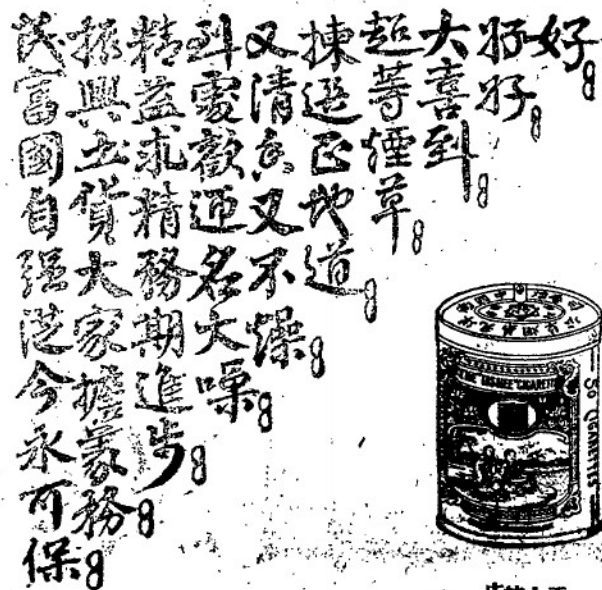 好。
好好。
大喜到。
超等煙草。
揀選正地道。
又清又不燥。
到處歡迎名大噪。
精益求精務期進步。
振興土貨大家擔義務。
民富國自强從今永可保。
50 CIGARETTES